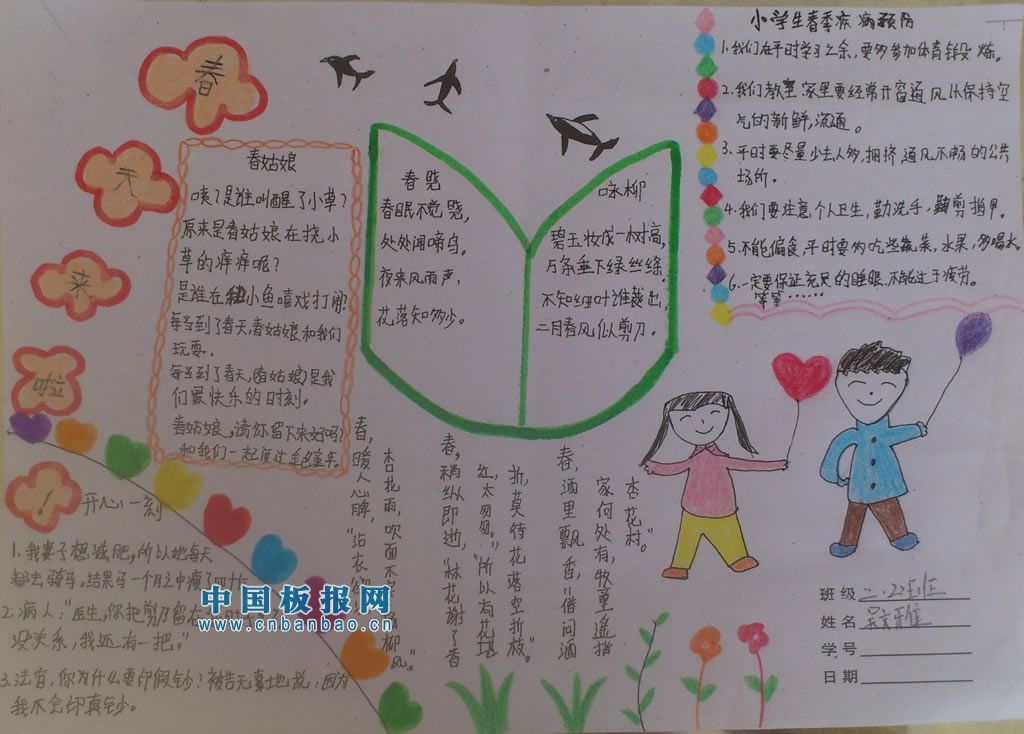 春
天
来
啦
！
春姑娘
咦？是谁叫醒了小草？
原来是春姑娘在挠小
草的痒痒呢？
是谁在和小鱼嘻戏打闹
每当到了春天，春姑娘和我们
玩耍.
每当到了春天，(春姑娘)是我
们最快乐的时刻.
春姑娘，请你留下来好吗？
和我们一起度过金色童年.
春晓
春眠不觉晓，
处处闻啼鸟。
夜来风雨声，
花落知多少。
咏柳
碧玉妆成一树高，
万条垂下绿丝绦.
不知细叶谁裁出，
二月春风似剪刀.
小学生春季疾病预防
1.我们在平时学习之余，要多参加体育锻炼。
2.我们教室家里要经常开窗通风以保持空
气的新鲜，流通。
3.平时要尽量少去人多，拥挤，通风不畅的公共
场所。
4.我们要注意个人卫生，勤洗手，勤剪指甲。
5.不能偏食，平时要多吃些蔬菜，水果，多喝水.
6.一定要保证充足的睡眠，不能过于疲劳。
等等……
春，暖人心脾，“沾衣欲
杏花雨，吹面不 杨柳风。”
春，稍纵即逝，“林花谢了春
红，太匆匆。”所以有花堪
折，莫待花落空折枝。
春，酒里飘香，“借问酒
家何处有，牧童遥指
杏花村。”
开心一刻
1.我妻子想减肥，所以她每天
都去骑马。结果马一个月之中瘦了四十斤
2.病人：“医生，你把剪刀留在
没关系，我还有一把。”
3.法官，你为什么要印假钞？被告无辜地说：因为
我不会印真钞。
中国板报网
www.cnbanbao.cn
班级 二.22班
姓名 吴
学号
日期